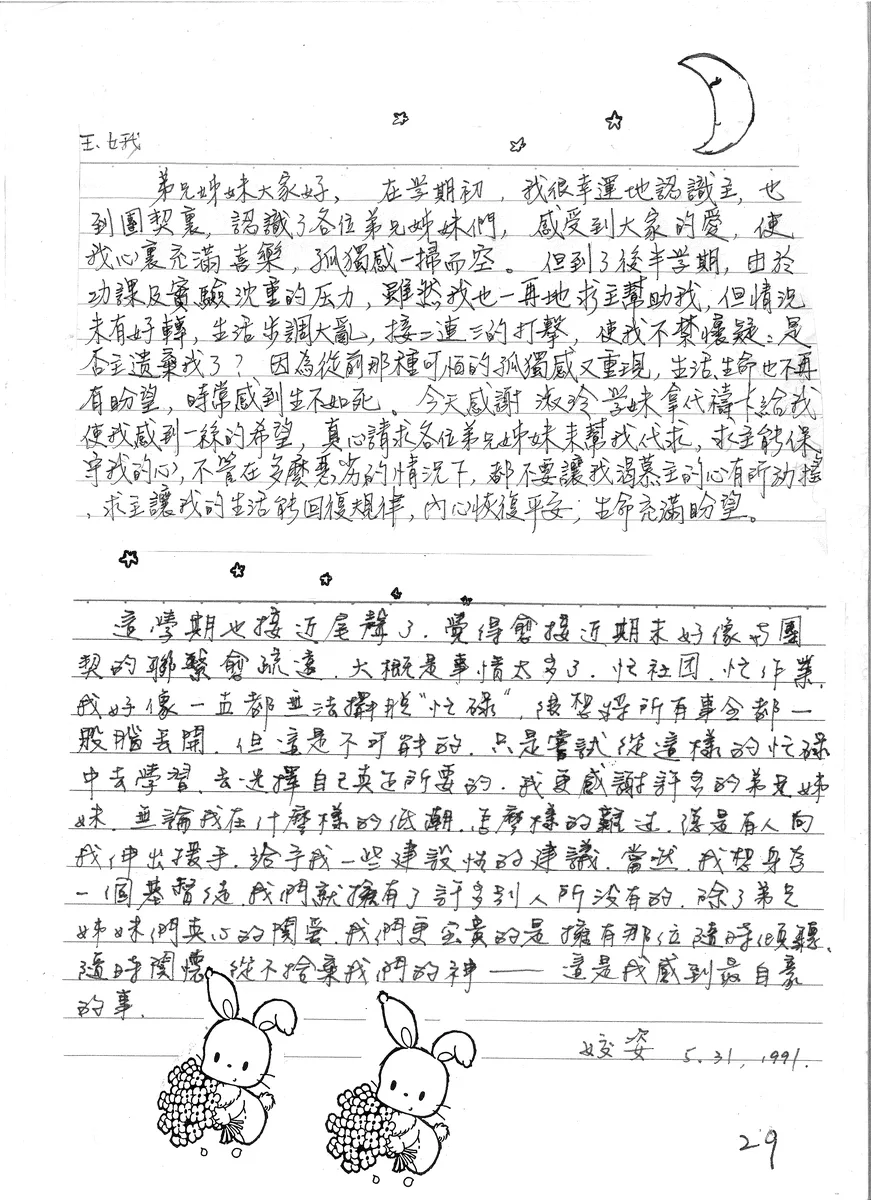 王、娥
弟兄姊妹大家好，在学期初，我很幸運地認識主，也
到團契裏，認識了各位弟兄姊妹們，感受到大家的愛，使
我心裏充滿喜樂，孤獨感一掃而空。但到了後半学期，由於
功課及實驗沈重的压力，雖然我也一再地求主幫助我，但情況
未有好轉，生活步調大亂，接二連三的打擊，使我不禁懷疑：是
否主遺棄我了？因為從前那種可怕的孤獨感又重現，生活、生命也不再
有盼望，時常感到生不如死。今天感謝淑玲学妹拿代禱卡給我
使我感到一絲的希望，真心請求各位弟兄姊妹来幫我代求，求主能保
守我的心，不管在多麼惡劣的情況下，都不要讓我渴慕主的心有所动搖
，求主讓我的生活能回復規律，內心恢復平安；生命充滿盼望。
這學期也接近尾聲了．覺得愈接近期末好像与團
契的聯繫愈疏遠．大概是事情太多了．忙社团．忙作業．
我好像一直都無法擺脫“忙碌”，很想將所有事全都一
股腦丟開．但這是不可能的．只是嘗試從這樣的忙碌
中去學習．去選擇自己真正所要的．我更感謝許多的弟兄姊
妹．無論我在什麼樣的低潮．怎麼樣的難过．總是有人向
我伸出援手．給予我一些建設性的建議．當然．我想身為
一個基督徒．我們就擁有了許多別人所没有的．除了弟兄
姊妹們真心的関愛．我們更宝貴的是擁有那位隨時傾聽、
隨時関懷．從不捨棄我們的神——這是我感到最自豪
的事．
姣姿 5.31,1991.
29